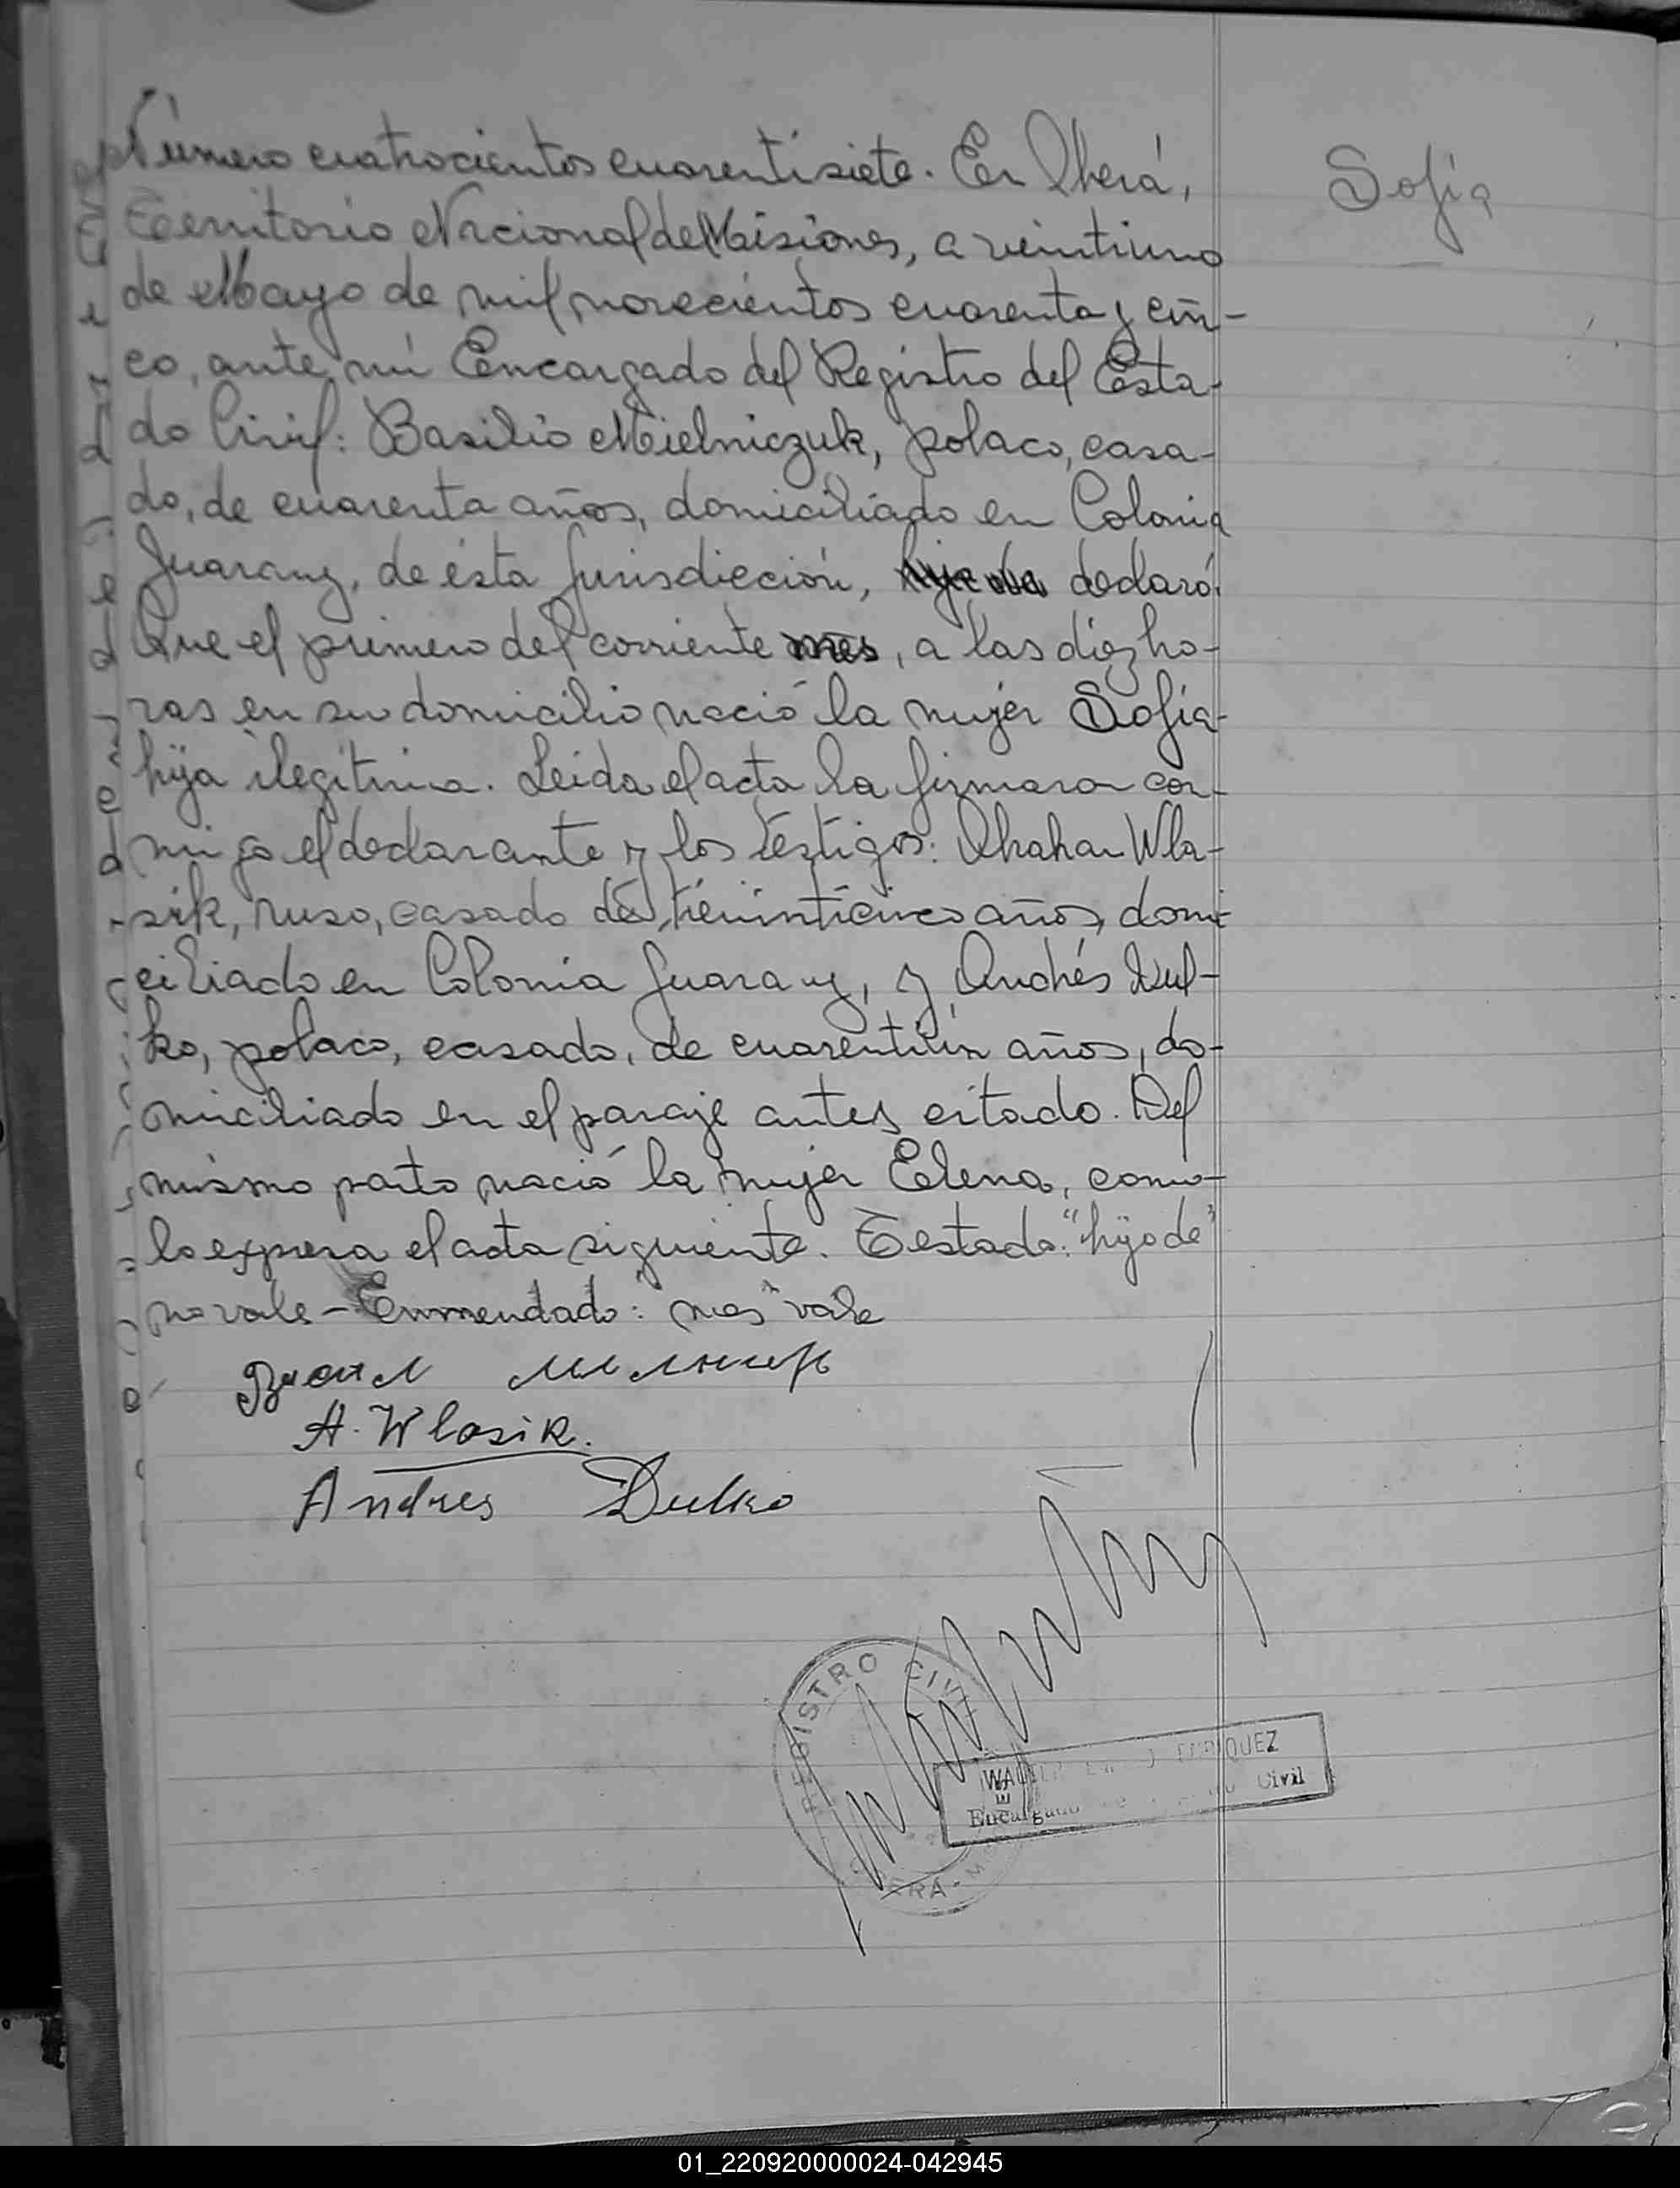 Número cuatrocientos cuarentisiete. En Oberá,
Sofía
Territorio Nacional de Misiones, a veintiuno
de Mayo de mil novecientos cuarenta y cin-
co, ante mí Encargado del Registro del Esta-
do Civil: Basilio Mielniczuk, polaco, casa-
do, de cuarenta años, domiciliado en Colonia
Guarany, de ésta jurisdicción, hijo de declaró:
Que el primero del corriente mes, a las diez ho-
ras en su domicilio nació la mujer Sofía-
hija ilegítima. Leida el acta la firmaron con-
migo el declarante y los testigos: Abahan Wla-
sik, ruso, casado de treinticinco años, domi-
ciliado en Colonia Guarany, y Andrés Dul-
ko, polaco, casado, de cuarentiún años, do-
miciliado en el paraje antes citado. Del
mismo parto nació la mujer Elena, como-
lo expresa el acta siguiente. Testado: "hijo de"
no vale - Enmendado: "mes" vale
A. Wlasik.
Andres Dulko
REGISTRO CIVIL
ENRIQUEZ
Encargado Civil
01_220920000024-042945